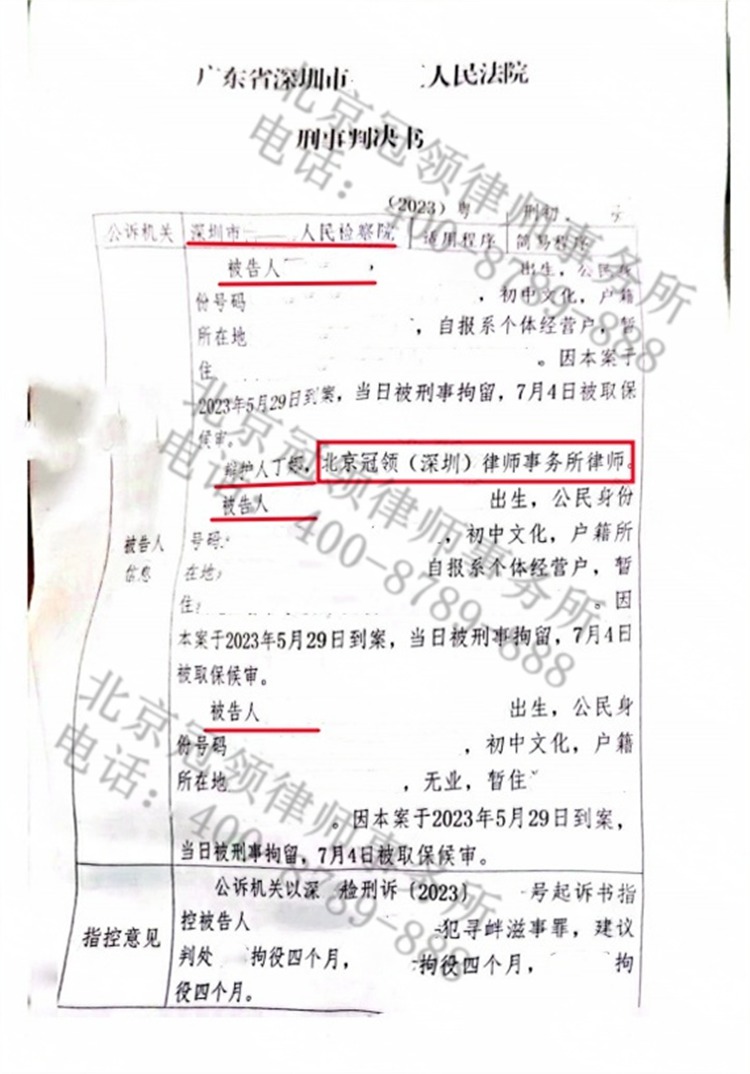 广东省深圳市 人民法院
刑事判决书
（2023）粤 刑初
公诉机关 深圳市 人民检察院 适用程序 简易程序
被告人 ， 出生，公民身
份号码 ，初中文化，户籍
所在地 ，自报系个体经营户，暂
住 。因本案于
2023年5月29日到案，当日被刑事拘留，7月4日被取保
候审。
辩护人丁 ，北京冠领（深圳）律师事务所律师。
被告人 出生，公民身份
号码： ，初中文化，户籍所
在地 自报系个体经营户，暂
住 。因
本案于2023年5月29日到案，当日被刑事拘留，7月4日
被取保候审。
被告人 出生，公民身
份号码 ，初中文化，户籍
所在地 ，无业，暂住
。因本案于2023年5月29日到案，
当日被刑事拘留，7月4日被取保候审。
被告人
信息
公诉机关以深 检刑诉（2023） 号起诉书指
控被告人 犯寻衅滋事罪，建议
判处 拘役四个月， 拘役四个月， 拘
役四个月。
指控意见
北京冠领律师事务所
电话：400-8789-888
北京冠领律师事务所
电话：400-8789-888
北京冠领律师事务所
电话：400-8789-888